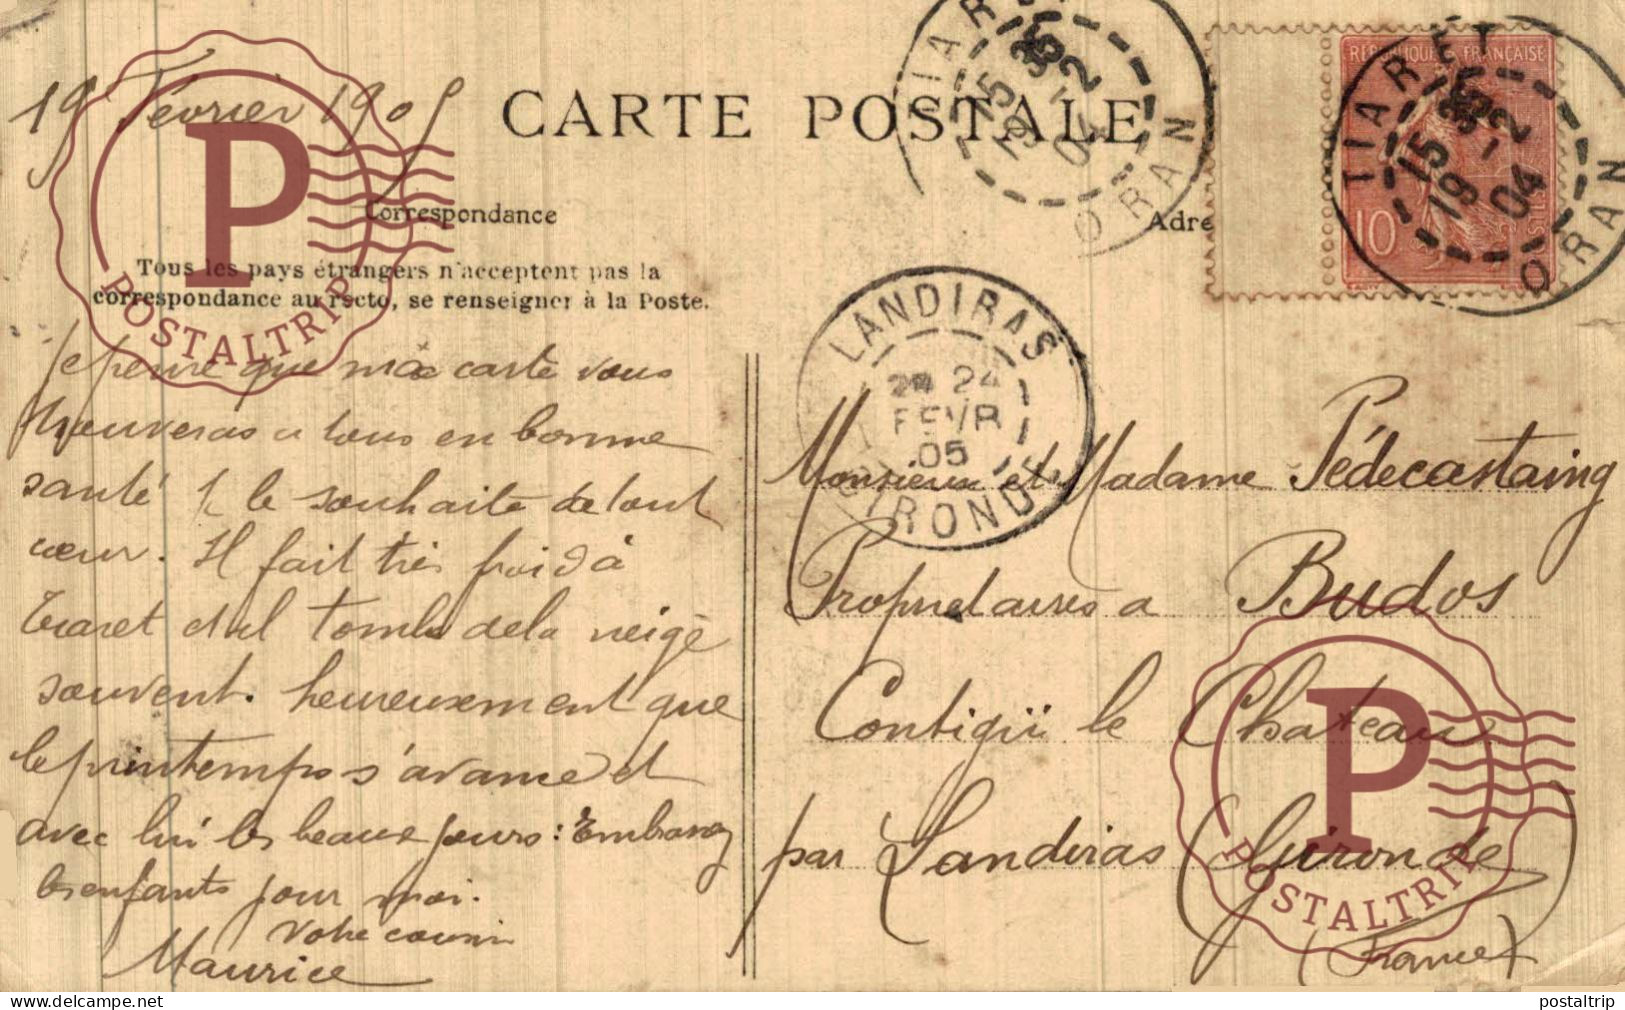 19 Février 1905
CARTE POSTALE
Correspondance
Adre
Tous les pays étrangers n'acceptent pas la
correspondance au recto, se renseigner à la Poste.
Je pense que ma carte vous
trouveras a tous en bonne
santé Je le souhaite de tout
cœur. Il fait très froid à
Tiaret et il tombe de la neige
souvent. heureusement que
le printemps s'avance et
avec lui les beaux jours : Embrassez
les enfants pour moi.
Votre cousin
Maurice
Monsieur et Madame Pédecastaing
Propriétaires a Budos
Contigüi le Chateau
par Landiras (Gironde
(France)
TIARET
15 35
19 -2
04
ORAN
REPUBLIQUE FRANÇAISE
10
POSTES
TIARET
15 35
19 -2
04
ORAN
LANDIRAS
24
FEVR
05
GIRONDE
P
POSTALTRIP
P
POSTALTRIP
https://www.delcampe.net
postaltrip